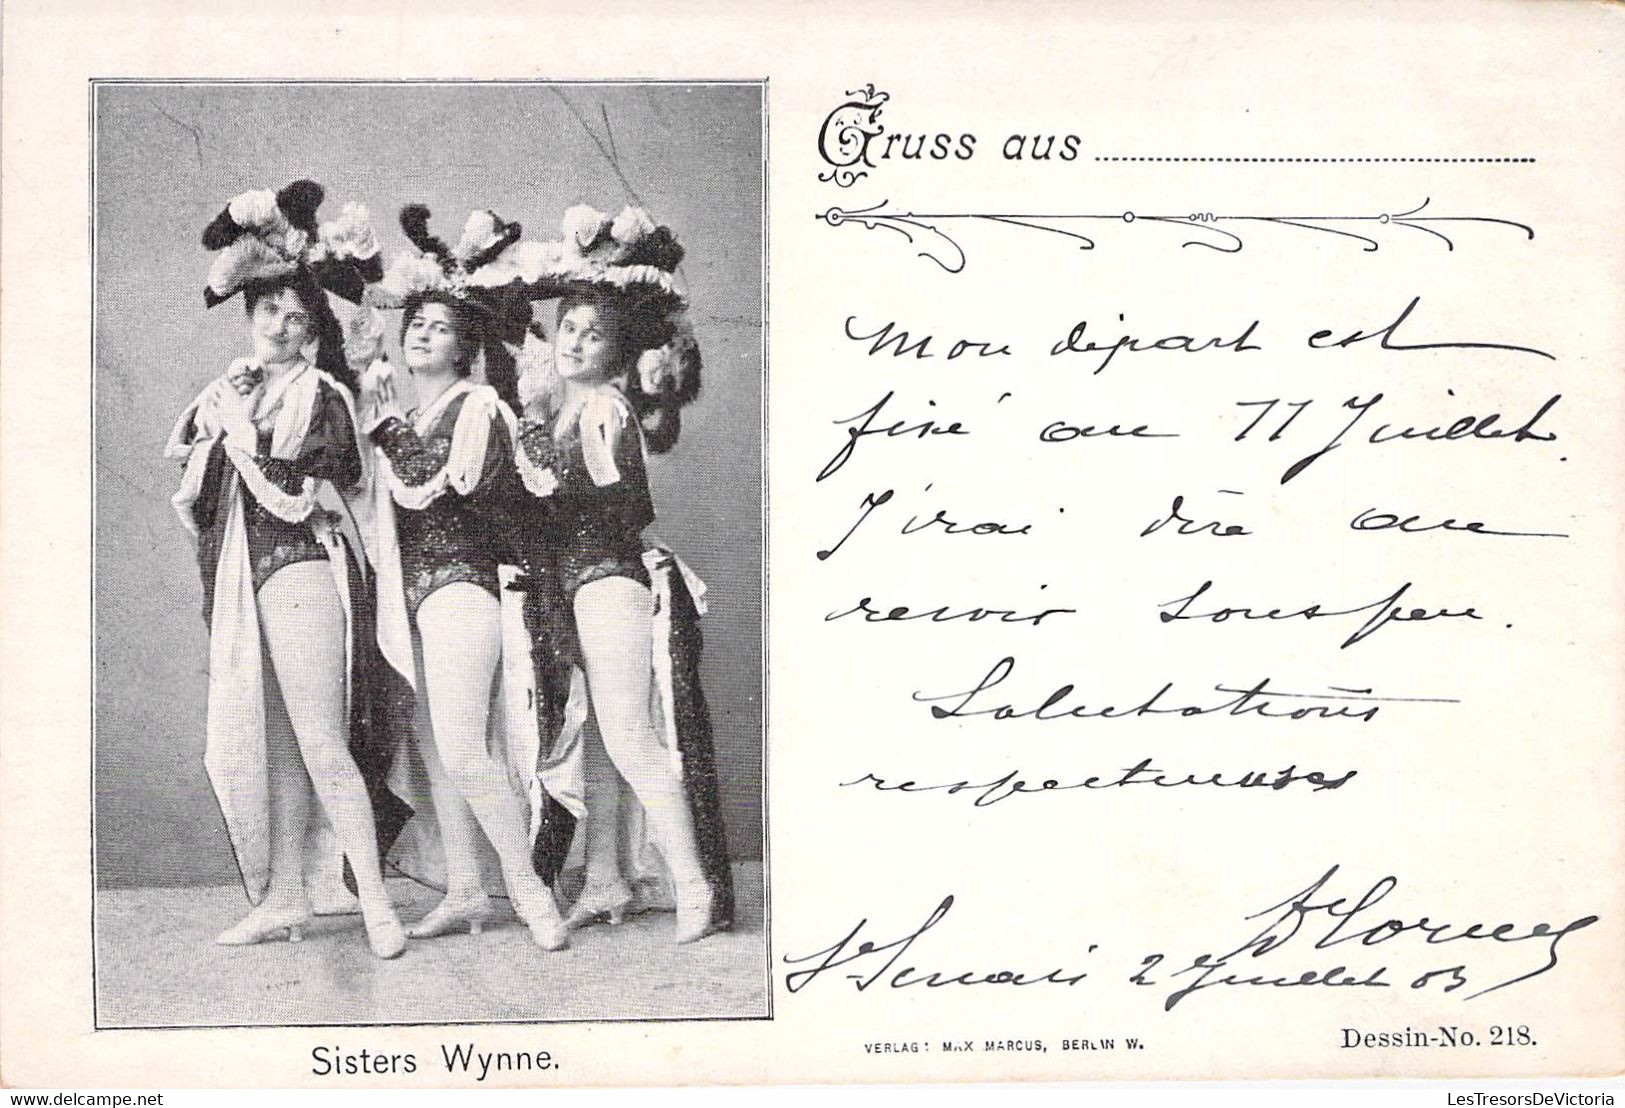 Gruss aus
Mon départ est
fixé au 11 Juillet.
J'irai dire au
revoir sous peu.
Salutations
respectueuses
St Servais 2 Juillet 03
VERLAG: MAX MARCUS, BERLIN W.
Dessin-No. 218.
Sisters Wynne.
delcampe.net
LesTresorsDeVictoria